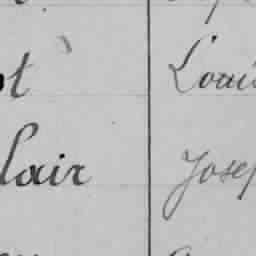 ot Loui
lair Josep